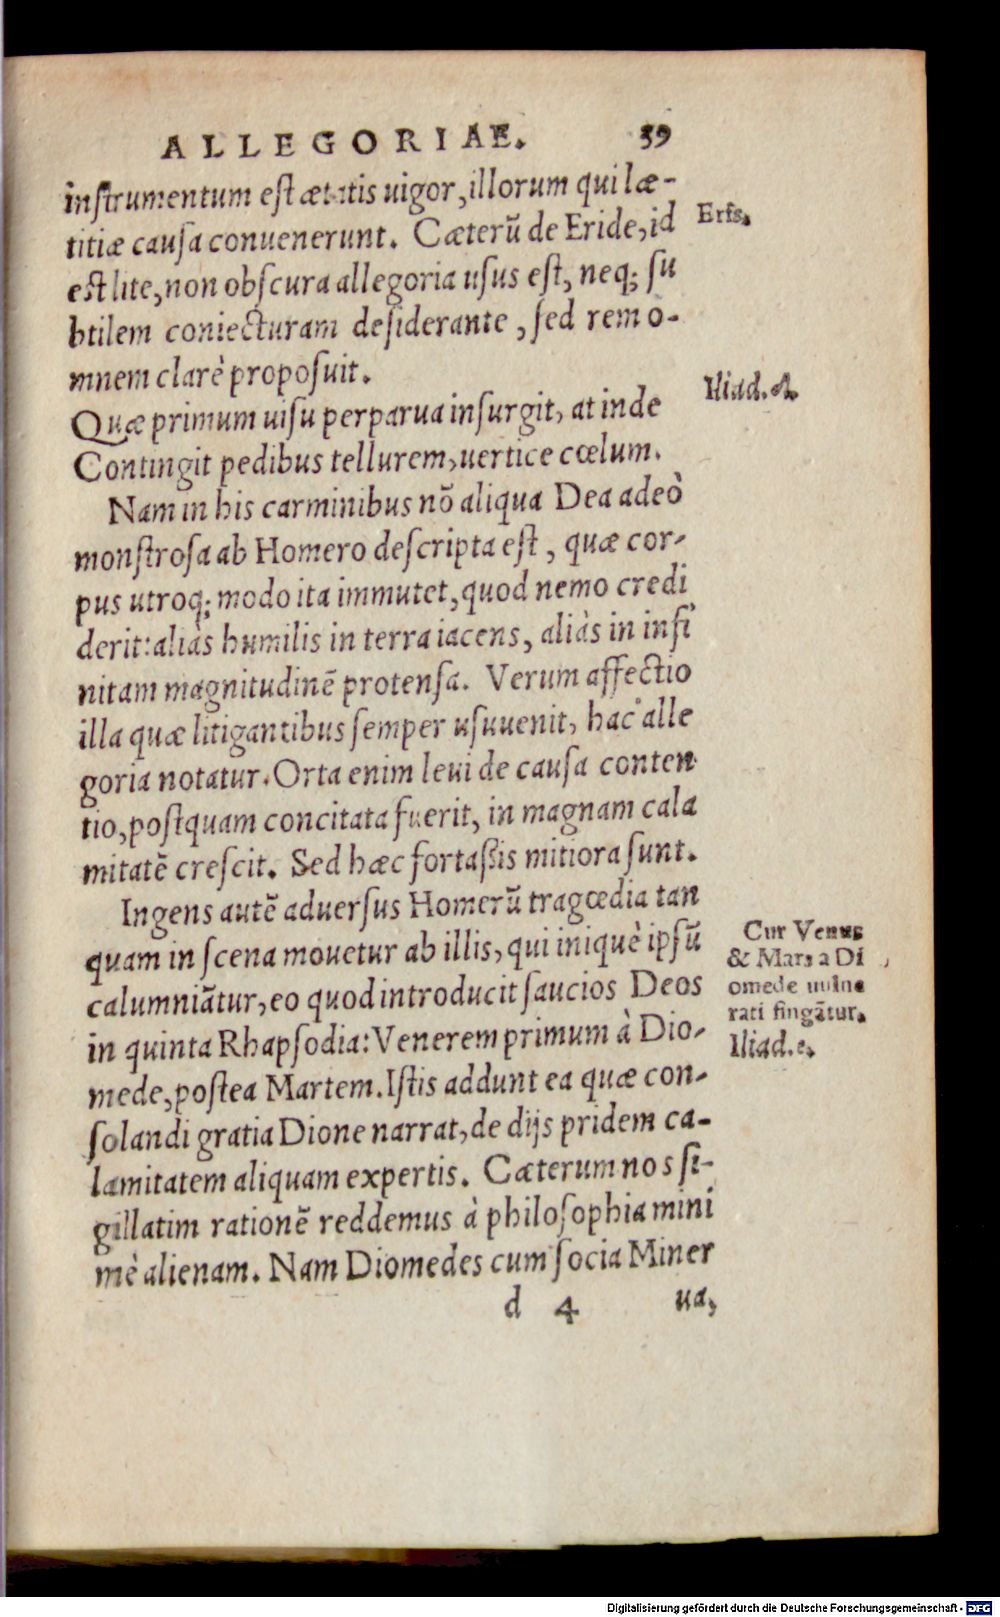 ALLEGORIAE. 59
instrumentum est ætatis uigor, illorum qui læ-
titiæ causa conuenerunt. Cæterũ de Eride, id
Eris.
est lite, non obscura allegoria usus est, neq; su
btilem coniecturam desiderante, sed rem o-
mnem clarè proposuit.
Iliad. δ.
Quæ primum uisu perparua insurgit, at inde
Contingit pedibus tellurem, uertice cœlum.
Nam in his carminibus nõ aliqua Dea adeò
monstrosa ab Homero descripta est, quæ cor-
pus utroq; modo ita immutet, quod nemo credi
derit: aliàs humilis in terra iacens, aliàs in infi
nitam magnitudinẽ protensa. Verum affectio
illa quæ litigantibus semper usuuenit, hac alle
goria notatur. Orta enim leui de causa conten
tio, postquam concitata fuerit, in magnam cala
mitatẽ crescit. Sed hæc fortaßis mitiora sunt.
Ingens autẽ aduersus Homerũ tragœdia tan
quam in scena mouetur ab illis, qui iniquè ipsũ
calumniãtur, eo quod introducit saucios Deos
in quinta Rhapsodia: Venerem primum à Dio-
mede, postea Martem. Istis addunt ea quæ con-
solandi gratia Dione narrat, de dijs pridem ca-
lamitatem aliquam expertis. Cæterum nos si-
gillatim rationẽ reddemus à philosophia mini
mè alienam. Nam Diomedes cum socia Miner
Cur Venus
& Mars a Di
omede uulne
rati fingãtur.
Iliad. ε.
d 4 ua,
Digitalisierung gefördert durch die Deutsche Forschungsgemeinschaft - DFG